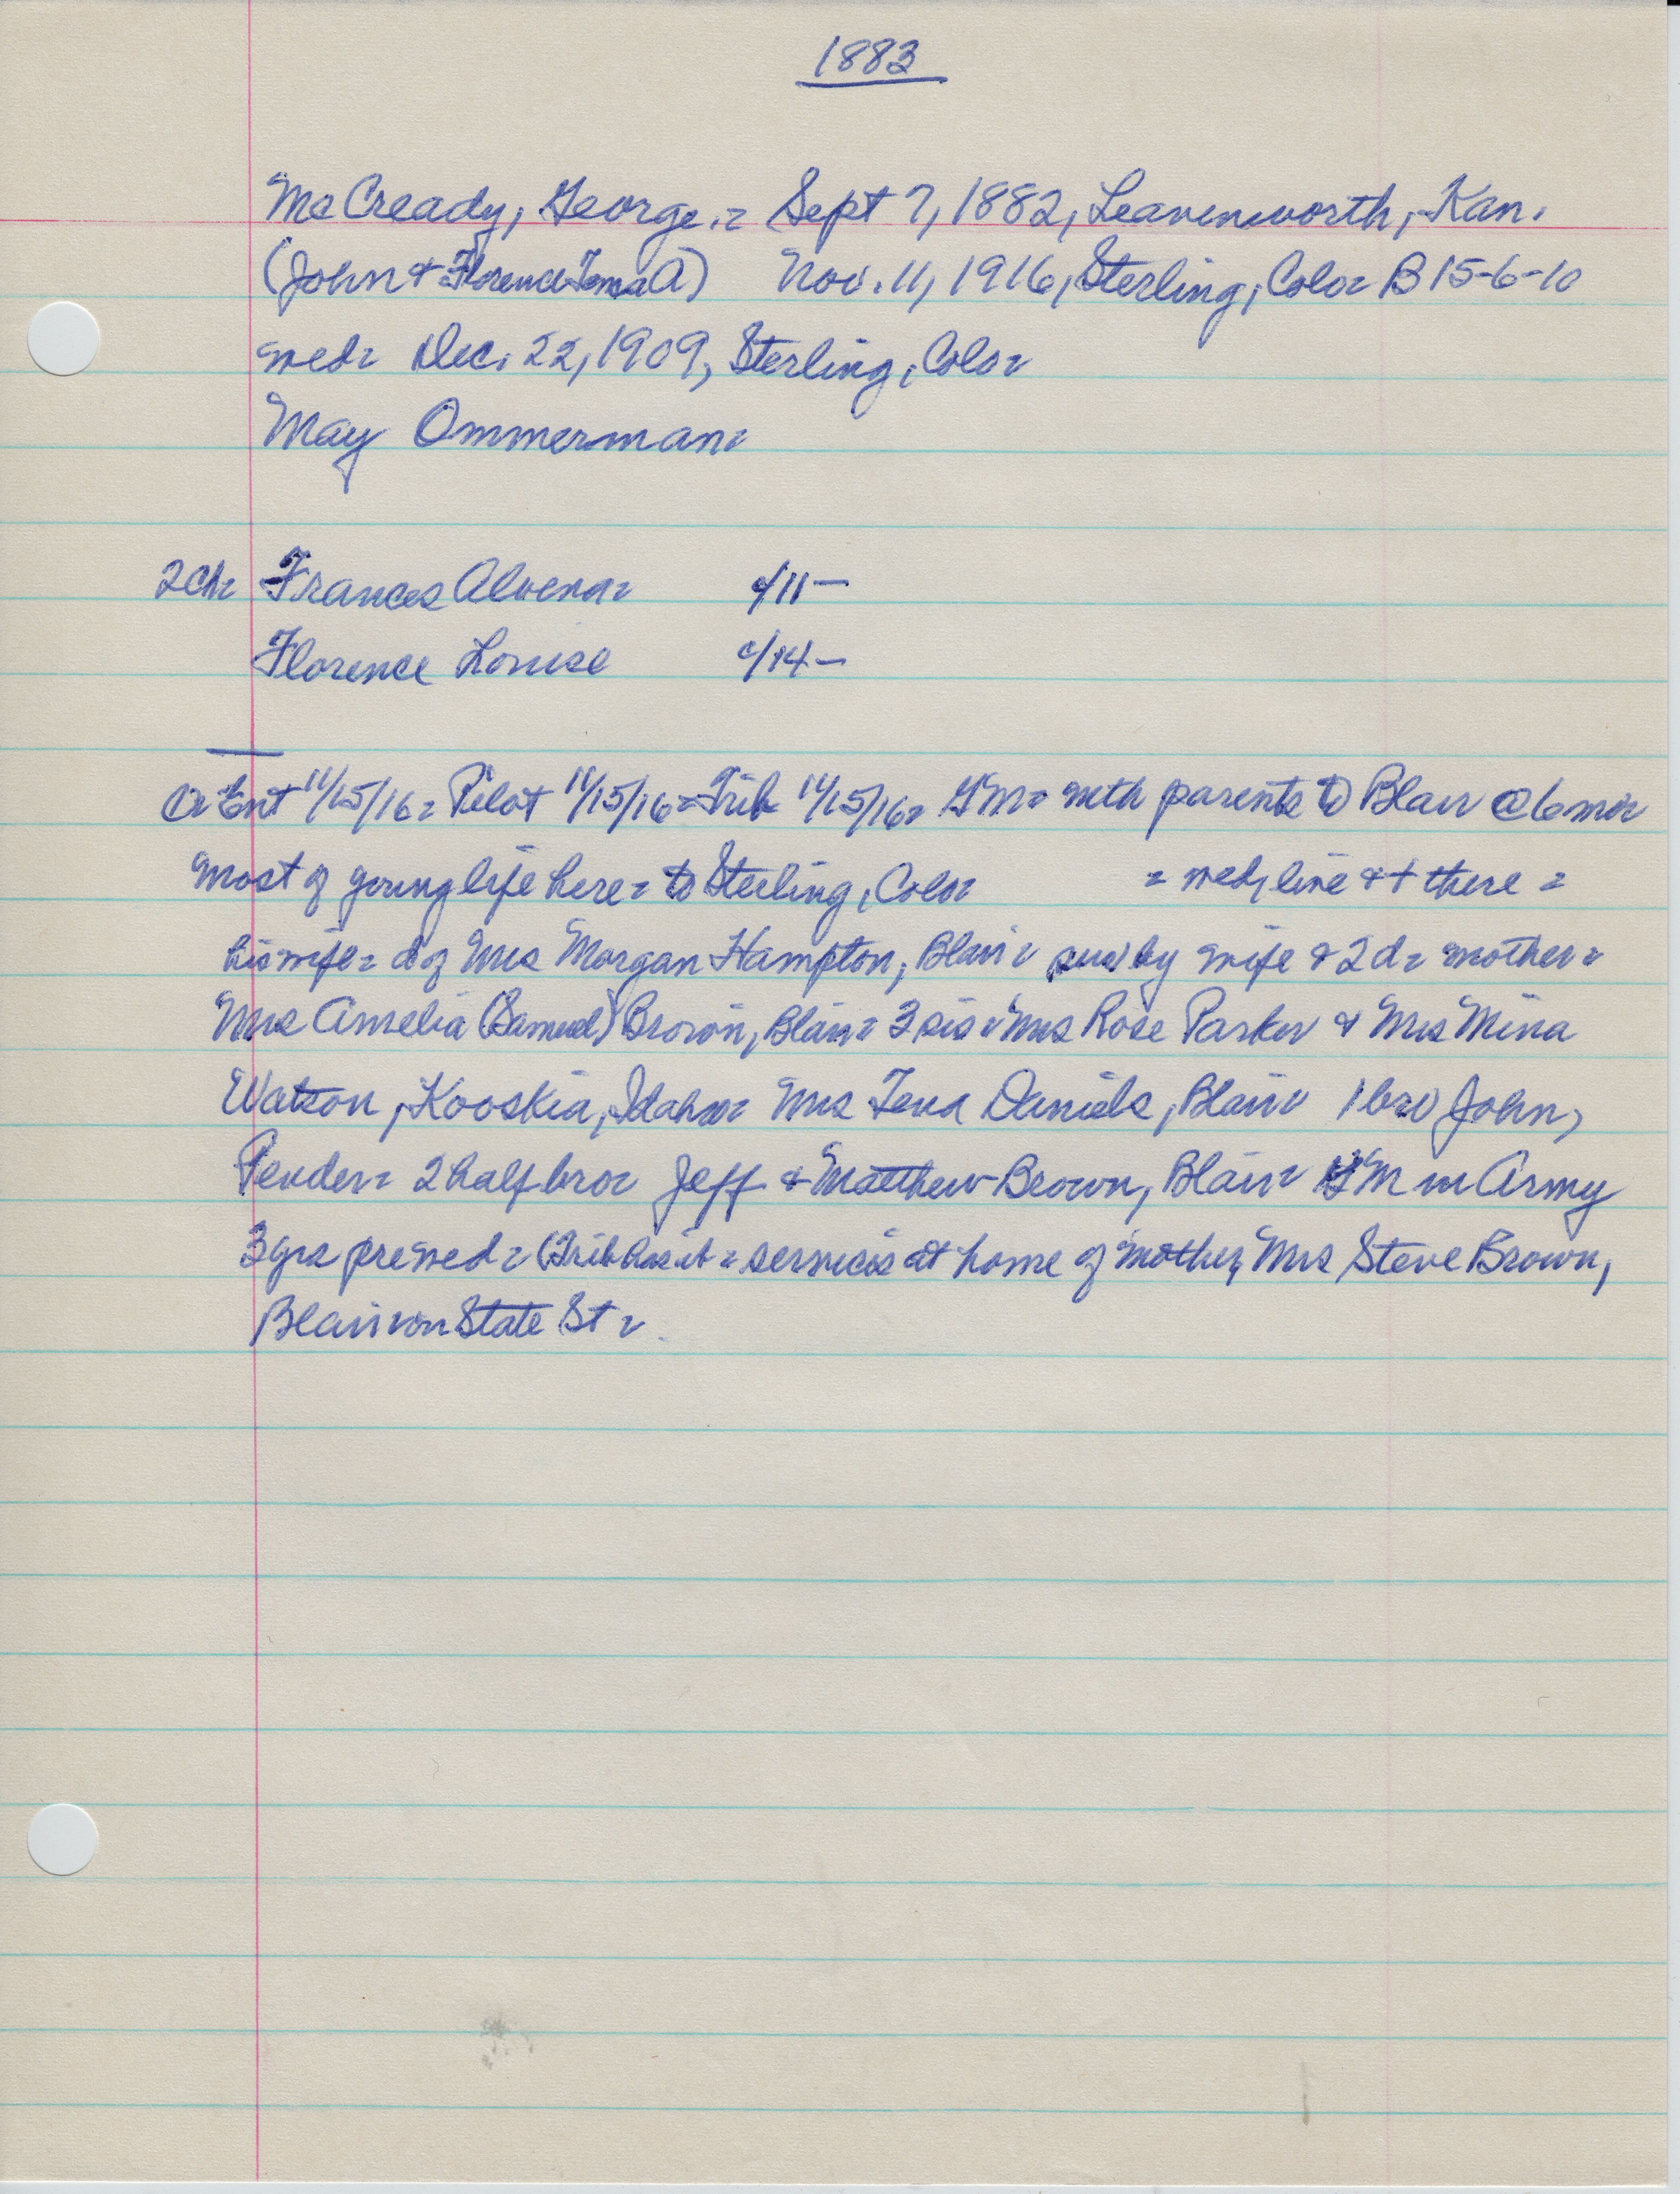 1883
McCready, George.= Sept 7, 1882, Leavenworth, Kan.
(John & Florence A) Nov. 11, 1916, Sterling, Colo= B 15-6-10
wed= Dec. 22, 1909, Sterling, Colo=
May Ommerman=
2 ch= Frances Alvena= c/11-
Florence Louise c/14-
Ent 11/15/16= Pilot 11/15/16= Trib 11/15/16= GM= with parents to Blair @ 6 mo=
most of young life here= to Sterling, Colo= = wed, live & + there =
his wife= d of Mrs Morgan Hampton, Blair= sur by wife & 2 d= mother=
Mrs Amelia (Samuel) Brown, Blair= 3 sis= Mrs Rose Parker & Mrs Mina
Watson, Kooskia, Idaho= Mrs Tena Daniels, Blair= 1 bro John,
Pender= 2 half bro= Jeff & Matthew Brown, Blair= GM in Army
3 yrs pre wed= (Trib has it= services at home of mother, Mrs Steve Brown,
Blair on State St=